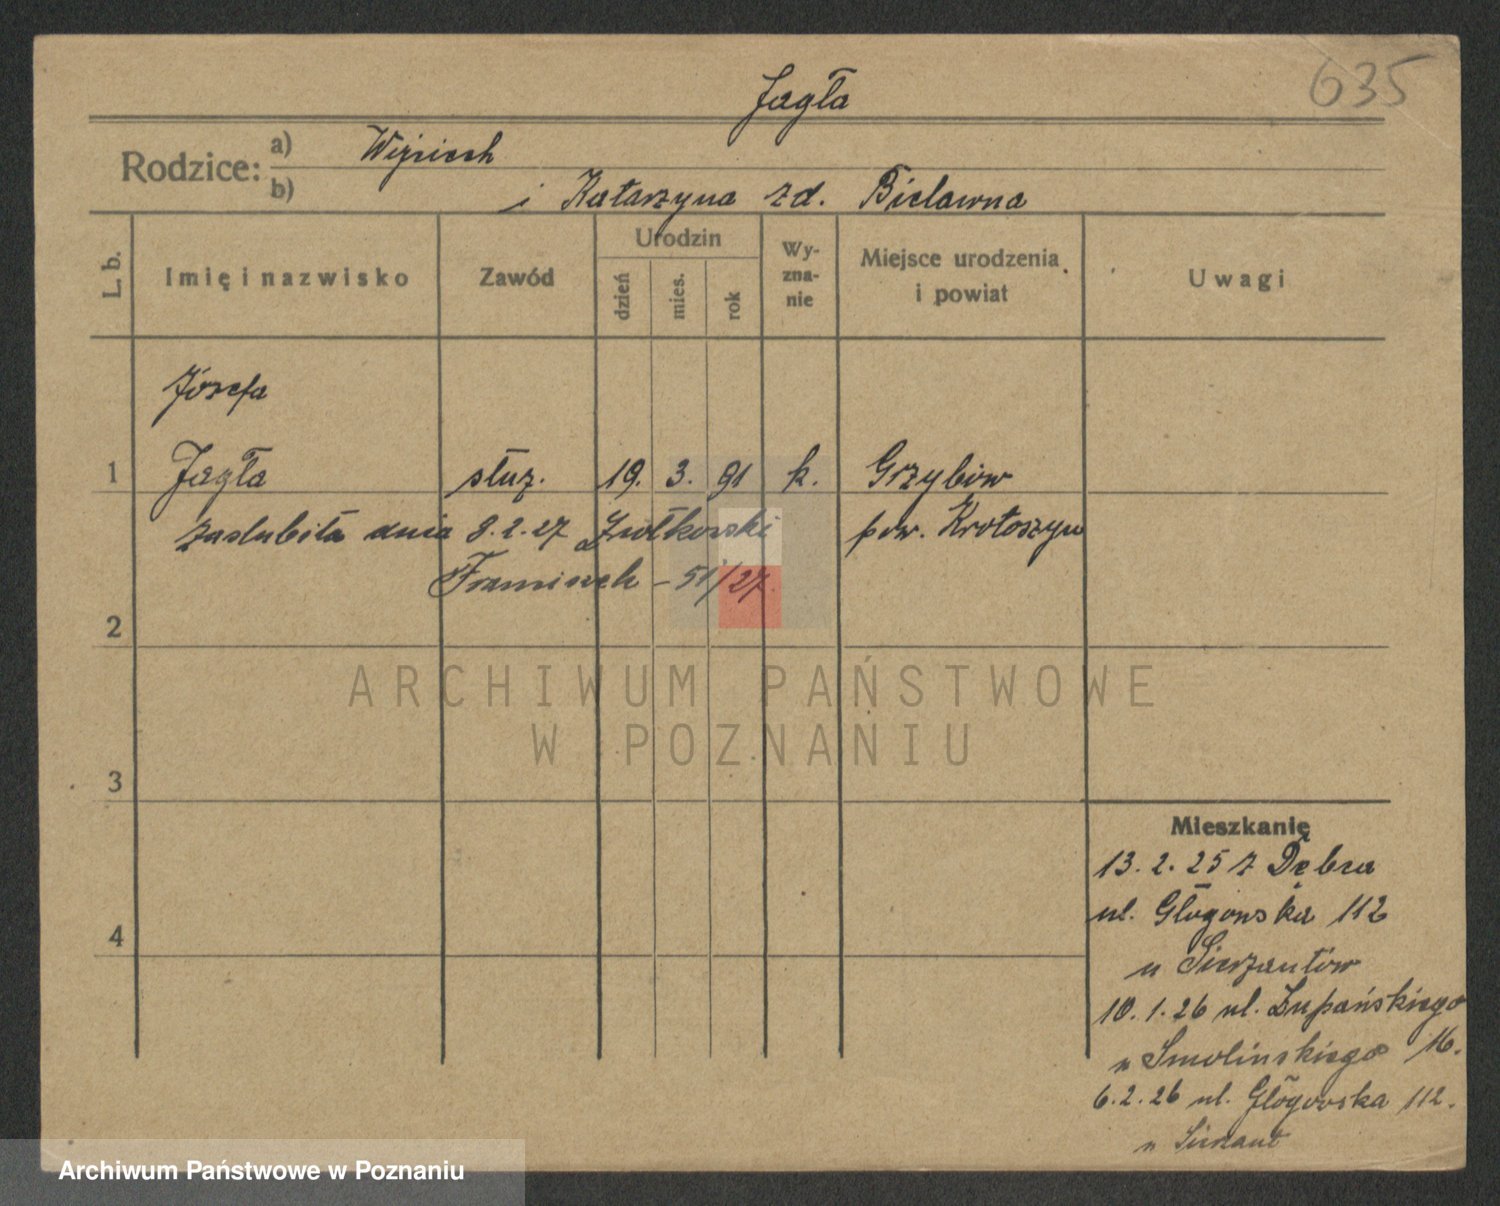 635
Jagła
Rodzice: a) Wojciech
b) i Katarzyna zd. Bielawna
L. b. Imię i nazwisko Zawód Urodzin dzień mies. rok Wy-zna-nie Miejsce urodzenia i powiat Uwagi
Józefa
1 Jagła służ. 19. 3. 91 k. Grzybów
zaślubiła dnia 8.2.27 Ziółkowski pow. Krotoszyn
Franciszek – 51/27.
2
ARCHIWUM PAŃSTWOWE
W POZNANIU
3
Mieszkanie
13.2.25 z Dębca
4
ul. Głogowska 112
u Sierżantów
10.1.26 ul. Łupańskiego
u Smolinskiego 16.
6.2.26 ul. Głogowska 112.
u
Archiwum Państwowe w Poznaniu